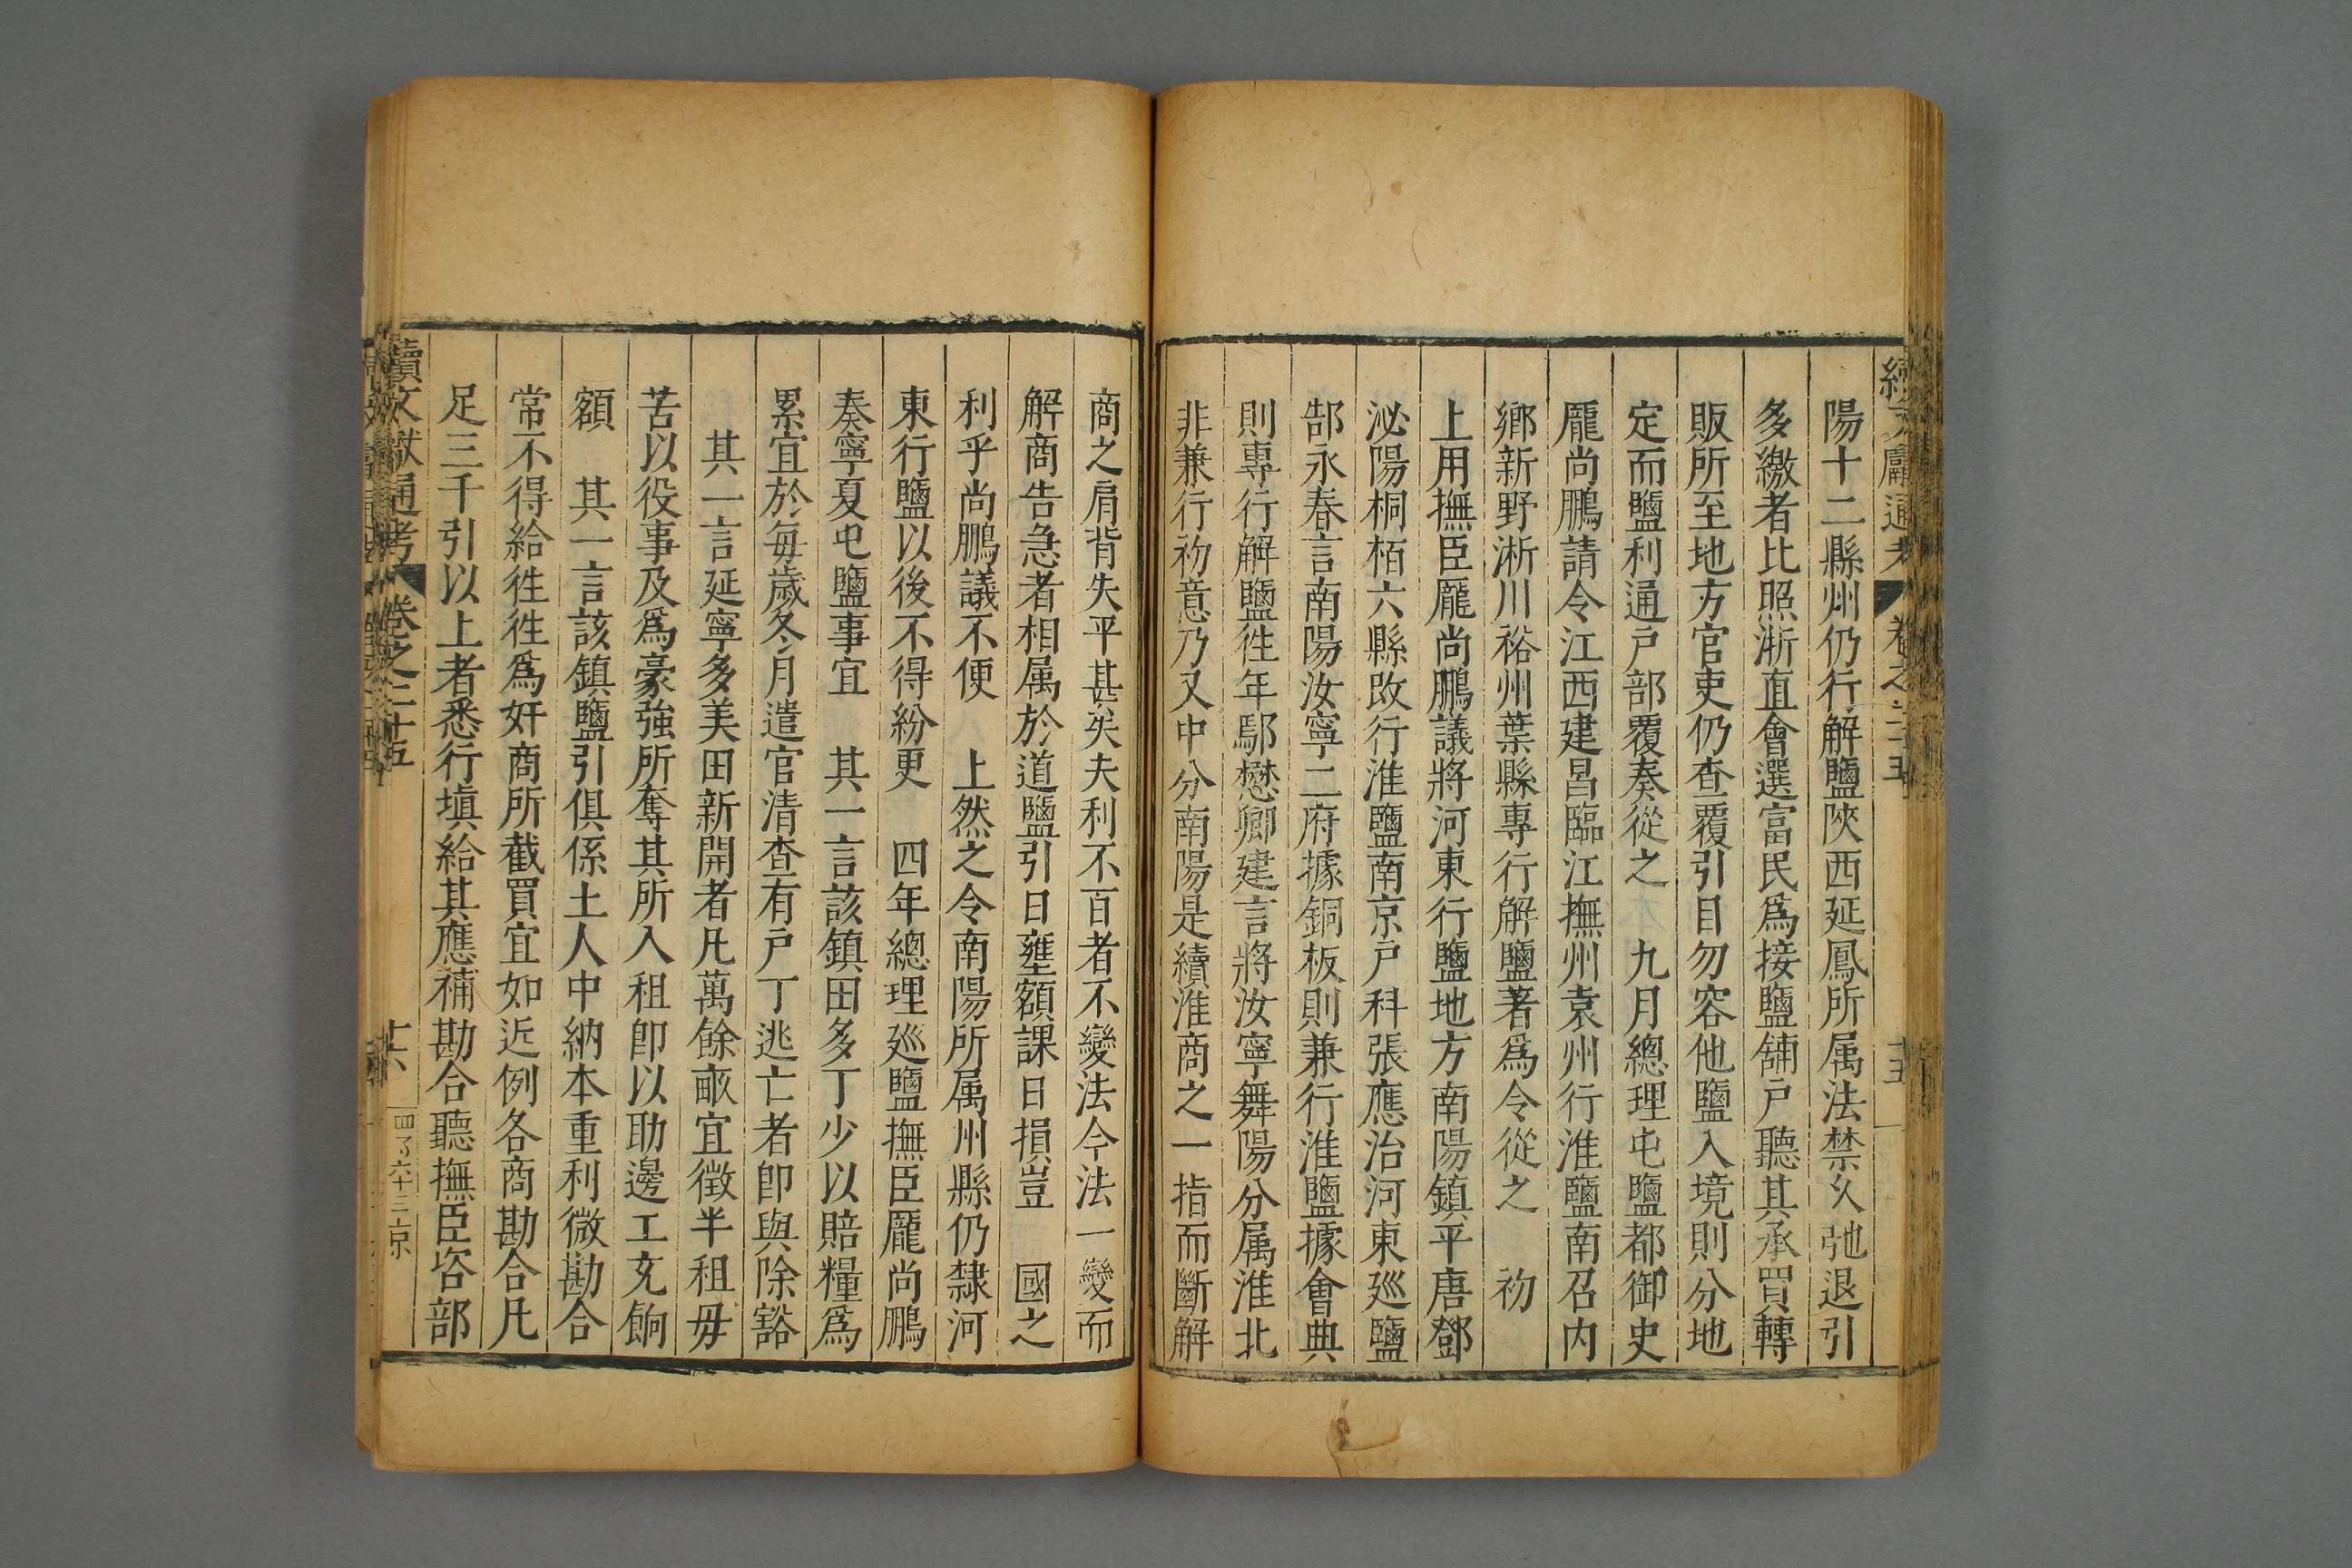 陽十二縣州仍行解鹽陝西延鳳所属法禁久弛退引
多繳者比照淅直會選富民爲接鹽舖戸聽其承買轉
販所至地方官吏仍查覆引目勿容他鹽入境則分地
定而鹽利通戸部覆奏從之　九月總理屯鹽都御史
龎尚鵬請令江西建昌臨江撫州袁州行淮鹽南召内
鄉新野淅川裕州葉縣專行解鹽著爲令從之　初
上用撫臣龎尚鵬議將河東行鹽地方南陽鎮平唐鄧
泌陽桐栢六縣改行淮鹽南京戸科張應治河東廵鹽
郜永春言南陽汝寧二府據銅板則兼行淮鹽據會典
則專行解鹽徃年鄢懋卿建言將汝寧舞陽分属淮北
非兼行初意乃又中分南陽是續淮商之一指而斷解
商之肩背失平甚矣夫利不百者不變法今法一變而
解商告急者相属於道鹽引日壅額課日損豈　國之
利乎尚鵬議不便　上然之令南陽所属州縣仍隸河
東行鹽以後不得紛更　四年總理廵鹽撫臣龎尚鵬
奏寧夏屯鹽事宜　其一言該鎮田多丁少以賠糧爲
累宜於每歲冬月遣官清查有戸丁逃亡者卽與除豁
其一言延寧多美田新開者凡萬餘畝宜徵半租毋
苦以役事及爲豪強所奪其所入租卽以助邊工充餉
額　其一言該鎮鹽引俱係土人中納本重利微勘合
常不得給徃徃爲奸商所截買宜如近例各商勘合凡
足三千引以上者悉行塡給其應補勘合聽撫臣咨部
續文獻通考　卷之二十五　十六